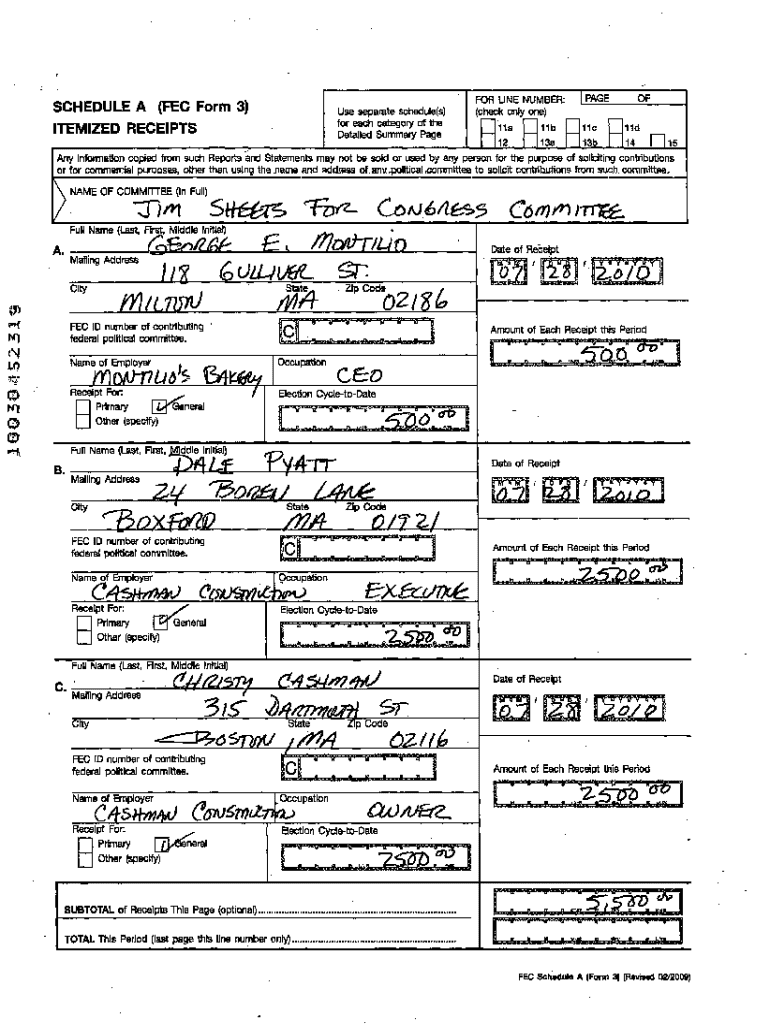 SCHEDULE A (FEC Form 3)
ITEMIZED RECEIPTS
Use separate schedule(s)
for each category of the
Detailed Summary Page
FOR LINE NUMBER: PAGE OF
(check only one)
11a 11b 11c 11d
12 13a 13b 14 15
Any information copied from such Reports and Statements may not be sold or used by any person for the purpose of soliciting contributions
or for commercial purposes, other than using the name and address of any political committee to solicit contributions from such committee.
NAME OF COMMITTEE (In Full)
JIM SHEETS FOR CONGRESS COMMITTEE
Full Name (Last, First, Middle Initial)
A. GEORGE E. MONTILIO
Mailing Address
118 GULLIVER ST.
City State Zip Code
MILTON MA 02186
FEC ID number of contributing
federal political committee.
C
Name of Employer Occupation
MONTILIO'S BAKERY CEO
Receipt For:
Primary General
Other (specify)
Election Cycle-to-Date
500.00
Date of Receipt
07 / 28 / 2010
Amount of Each Receipt this Period
500.00
Full Name (Last, First, Middle Initial)
B. DALE PYATT
Mailing Address
24 BOREN LANE
City State Zip Code
BOXFORD MA 01921
FEC ID number of contributing
federal political committee.
C
Name of Employer Occupation
CASHMAN CONSTRUCTION EXECUTIVE
Receipt For:
Primary General
Other (specify)
Election Cycle-to-Date
2500.00
Date of Receipt
07 / 28 / 2010
Amount of Each Receipt this Period
2500.00
Full Name (Last, First, Middle Initial)
C. CHRISTY CASHMAN
Mailing Address
315 DARTMOTH ST
City State Zip Code
BOSTON, MA 02116
FEC ID number of contributing
federal political committee.
C
Name of Employer Occupation
CASHMAN CONSTRUCTION OWNER
Receipt For:
Primary General
Other (specify)
Election Cycle-to-Date
2500.00
Date of Receipt
07 / 28 / 2010
Amount of Each Receipt this Period
2500.00
SUBTOTAL of Receipts This Page (optional)
5,500.00
TOTAL This Period (last page this line number only)
FEC Schedule A (Form 3) (Revised 02/2009)
10030452319